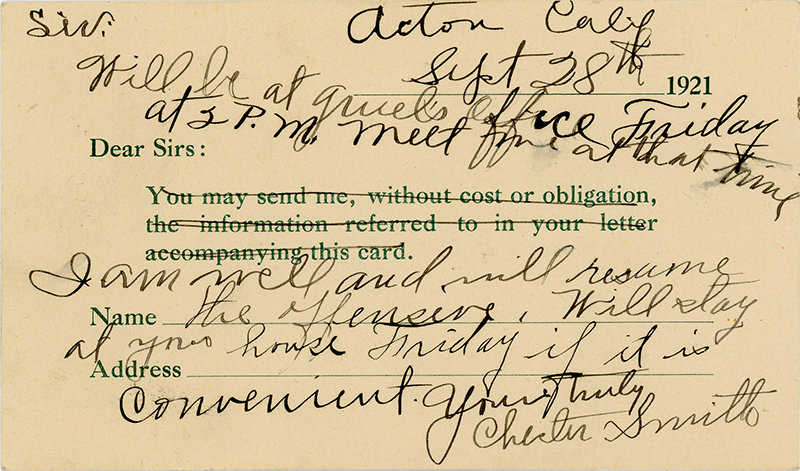 Sir:
Acton Calif
Sept 28th 1921
Will be at gruels office Friday
at 2 P.M. Meet me at that time
Dear Sirs:
You may send me, without cost or obligation,
the information referred to in your letter
accompanying this card.
I am well and will resume
Name the offensive, Will stay
at your house Friday if it is
Address
convenient. Yours Truly
Chester Smith